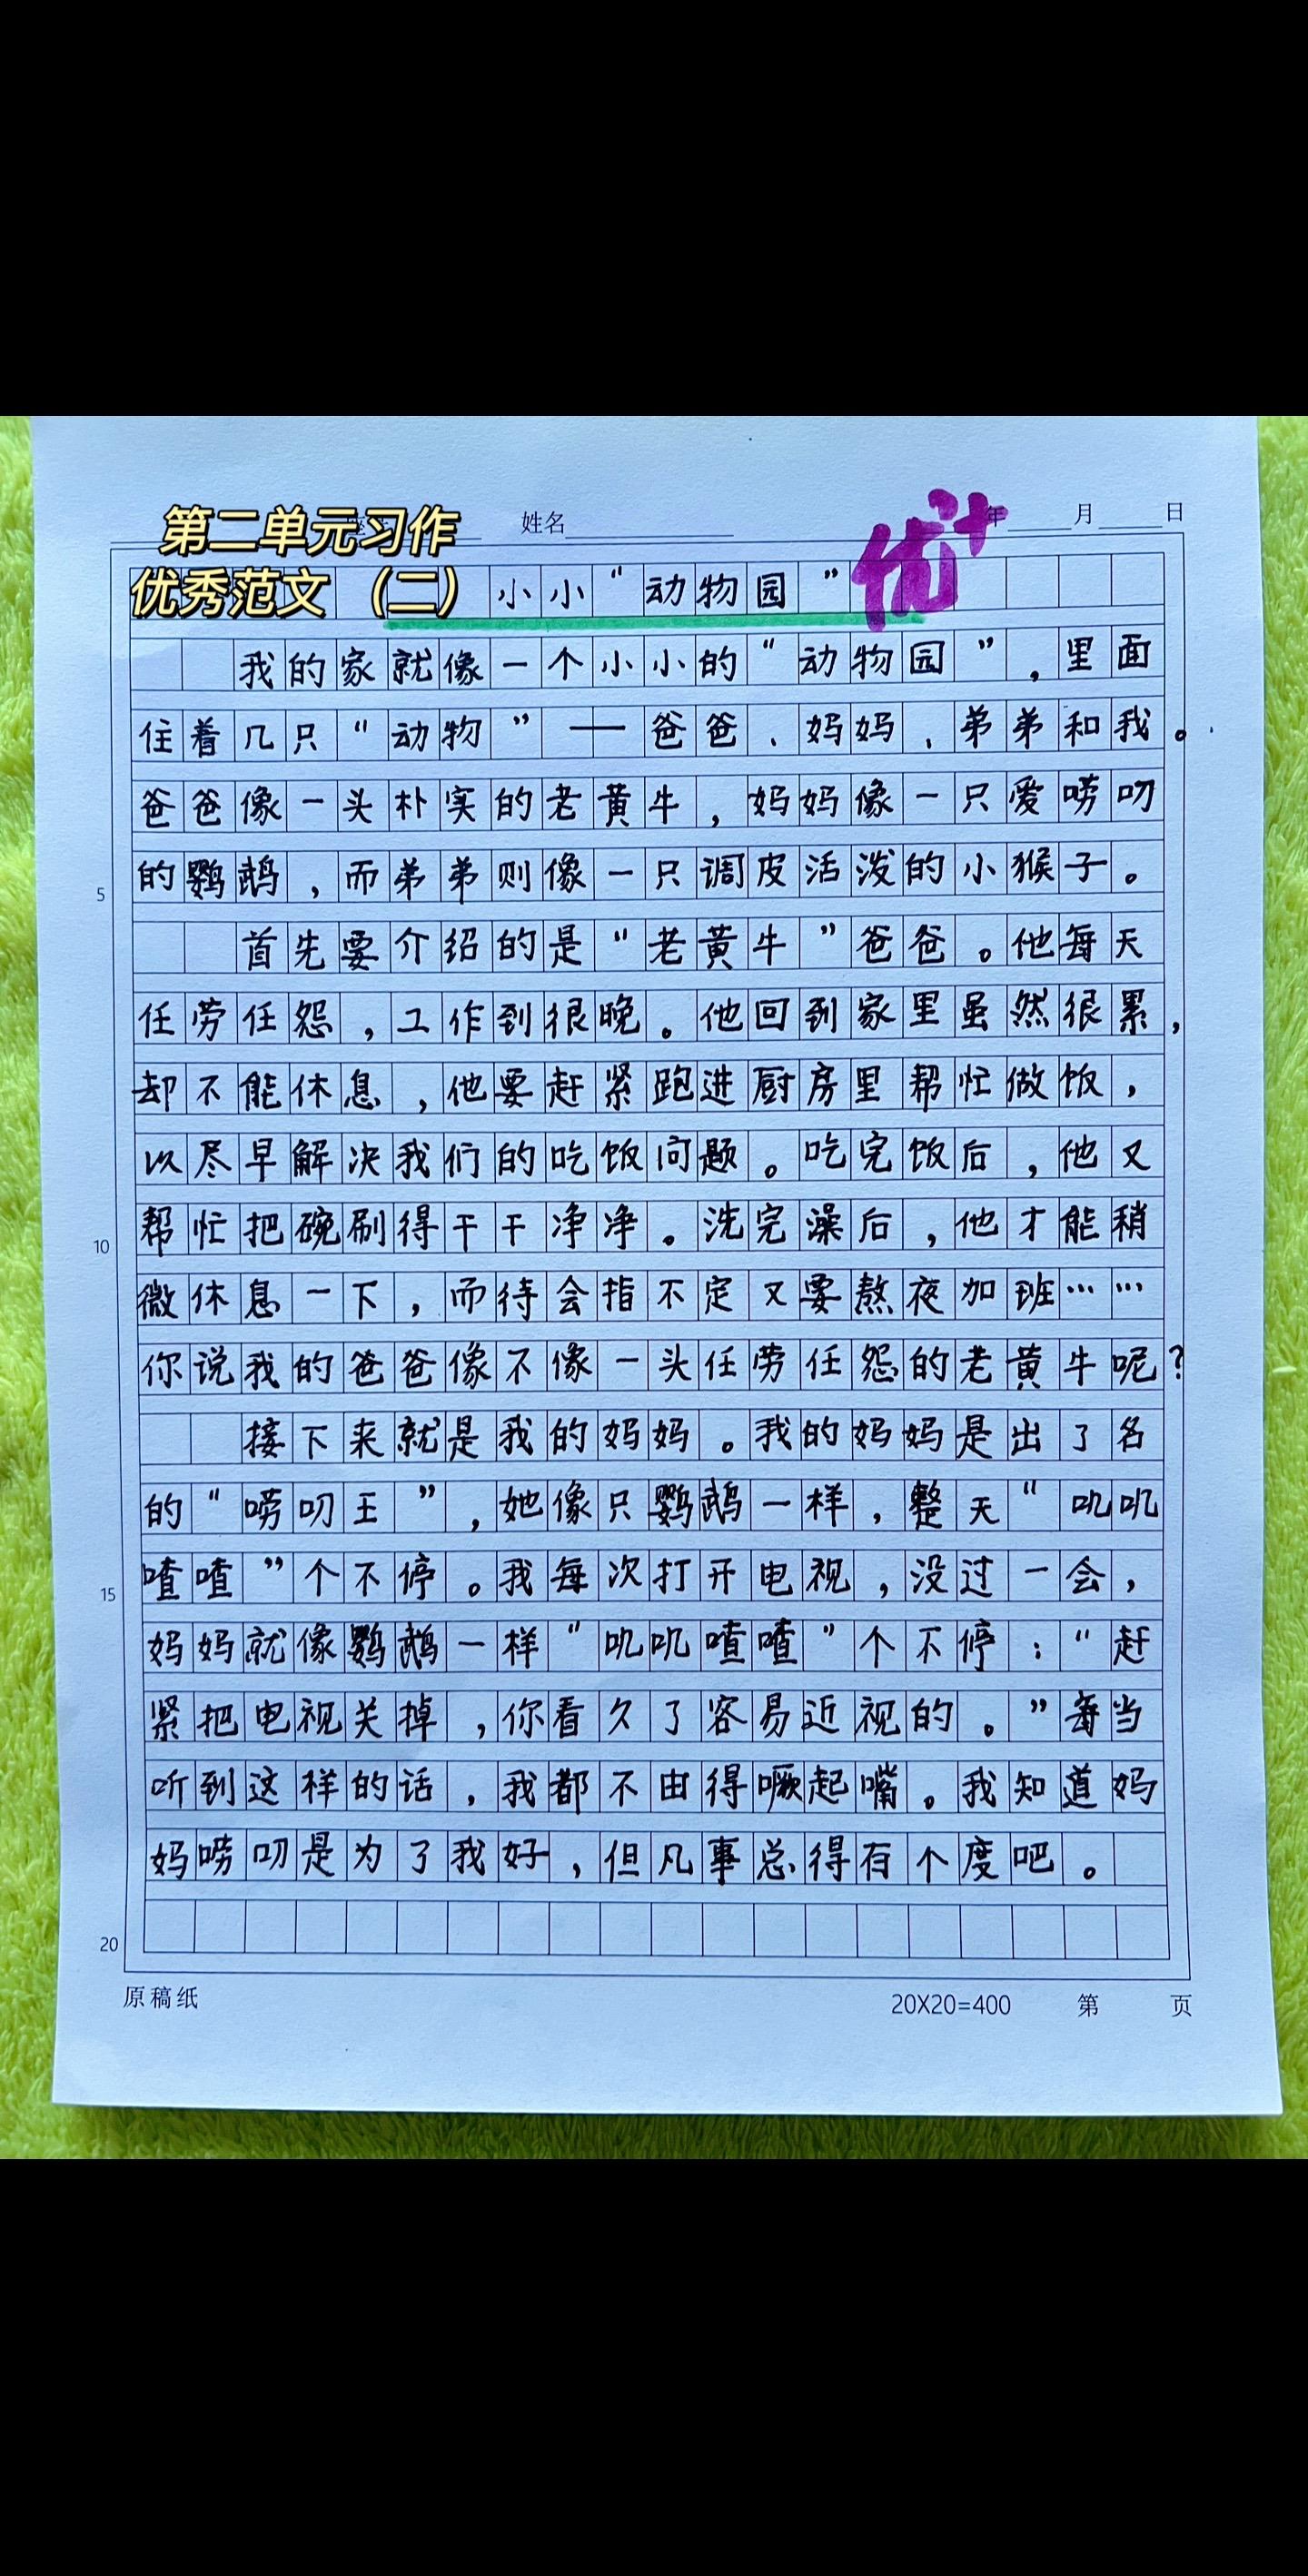 第二单元习作
优秀范文（二）
姓名 年 月 日
优+
小小“动物园”
我的家就像一个小小的“动物园”，里面
住着几只“动物”——爸爸、妈妈、弟弟和我。
爸爸像一头朴实的老黄牛，妈妈像一只爱唠叨
的鹦鹉，而弟弟则像一只调皮活泼的小猴子。
5
首先要介绍的是“老黄牛”爸爸。他每天
任劳任怨，工作到很晚。他回到家里虽然很累，
却不能休息，他要赶紧跑进厨房里帮忙做饭，
以尽早解决我们的吃饭问题。吃完饭后，他又
帮忙把碗刷得干干净净。洗完澡后，他才能稍
10
微休息一下，而待会指不定又要熬夜加班……
你说我的爸爸像不像一头任劳任怨的老黄牛呢？
接下来就是我的妈妈。我的妈妈是出了名
的“唠叨王”，她像只鹦鹉一样，整天“叽叽
喳喳”个不停。我每次打开电视，没过一会，
15
妈妈就像鹦鹉一样“叽叽喳喳”个不停：“赶
紧把电视关掉，你看久了容易近视的。”每当
听到这样的话，我都不由得噘起嘴。我知道妈
妈唠叨是为了我好，但凡事总得有个度吧。
20
原稿纸 20X20=400 第 页